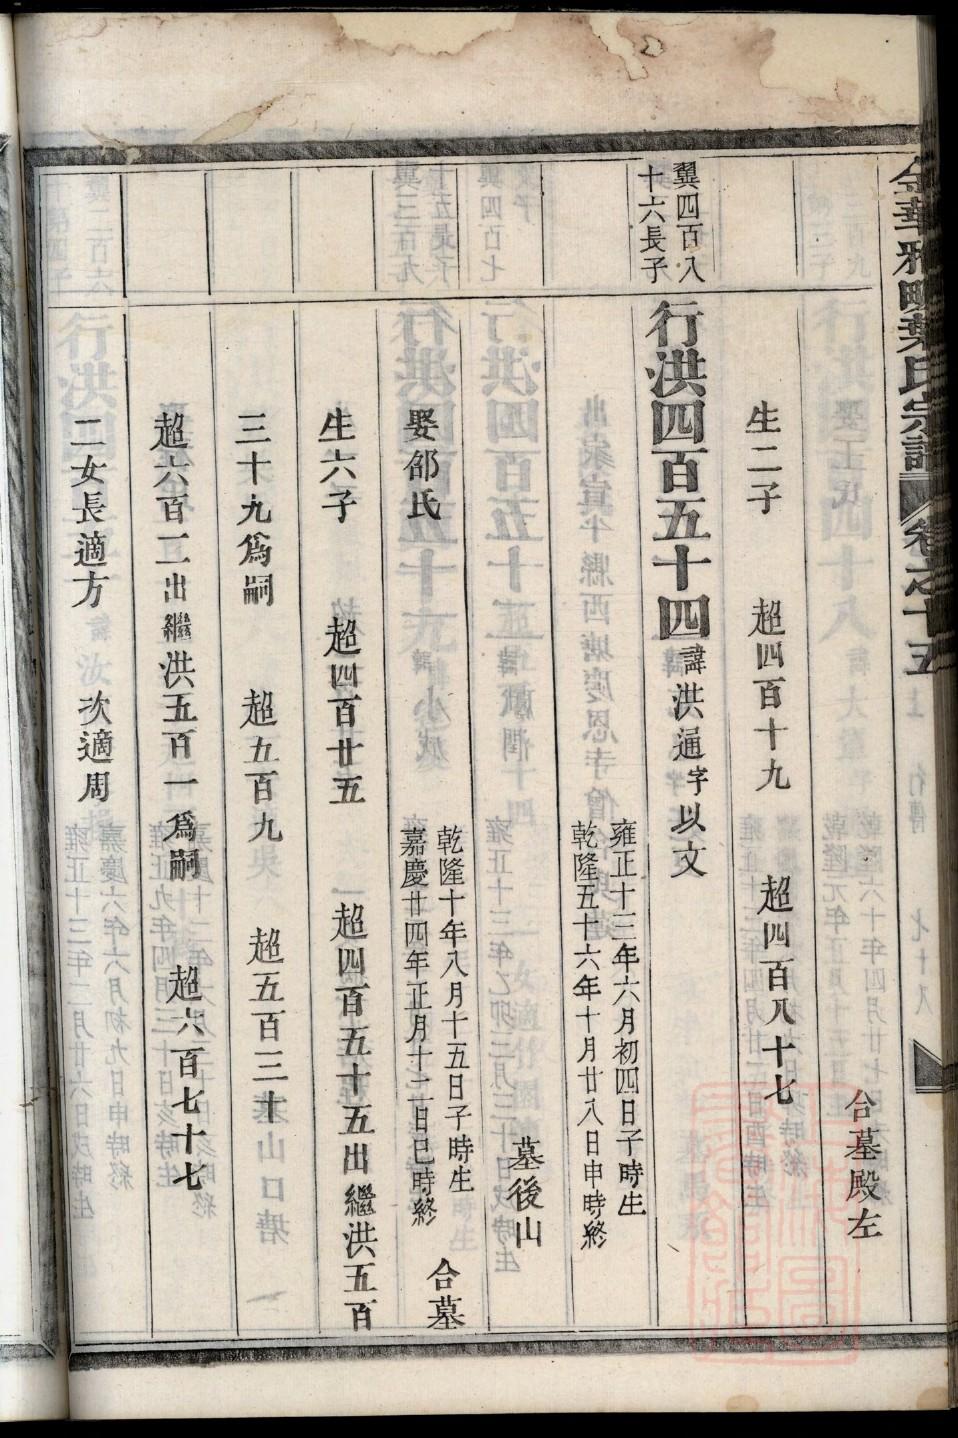 金華雅畈葉氏宗譜 卷之十五
合墓殿左
生二子 超四百十九 超四百八十七
翼四百八
十六長子
行洪四百五十四 諱洪通字以文
雍正十三年六月初四日子時生
乾隆五十六年十月廿八日申時終
墓後山
娶邵氏
乾隆十年八月十五日子時生
嘉慶廿四年正月十二日巳時終
合墓
生六子 超四百廿五 超四百五十五出繼洪五百
三十九爲嗣 超五百九 超五百三十
超六百二出繼洪五百一爲嗣 超六百七十七
二女長適方 次適周